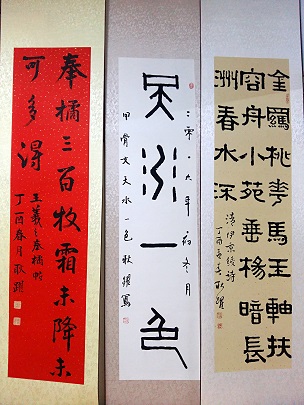 金羈桃花馬玉軸扶
容舟小苑垂楊暗長
洲春水深
清伊秉綬詩
丁酉春耿躍
天水一色
二零一六年初冬月
甲骨文天水一色耿躍寫
奉橘三百枚霜未降未
可多得
王羲之奉橘帖
丁酉春月耿躍